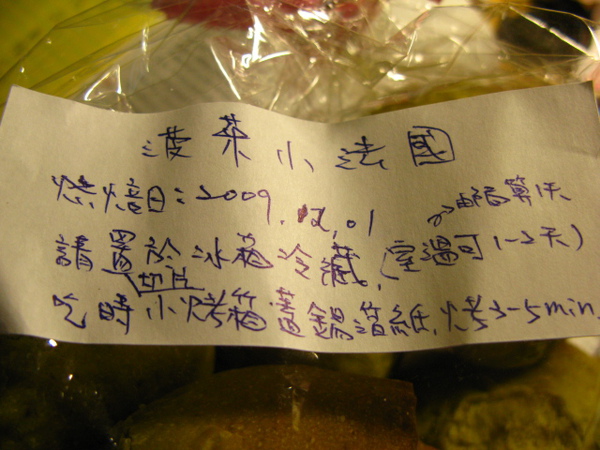 菠菜小法國
烘焙日:2009.12.01
請置於冰箱冷藏,(室溫可1~2天)
切片
吃時小烤箱蓋鋁箔紙,烤3-5min.